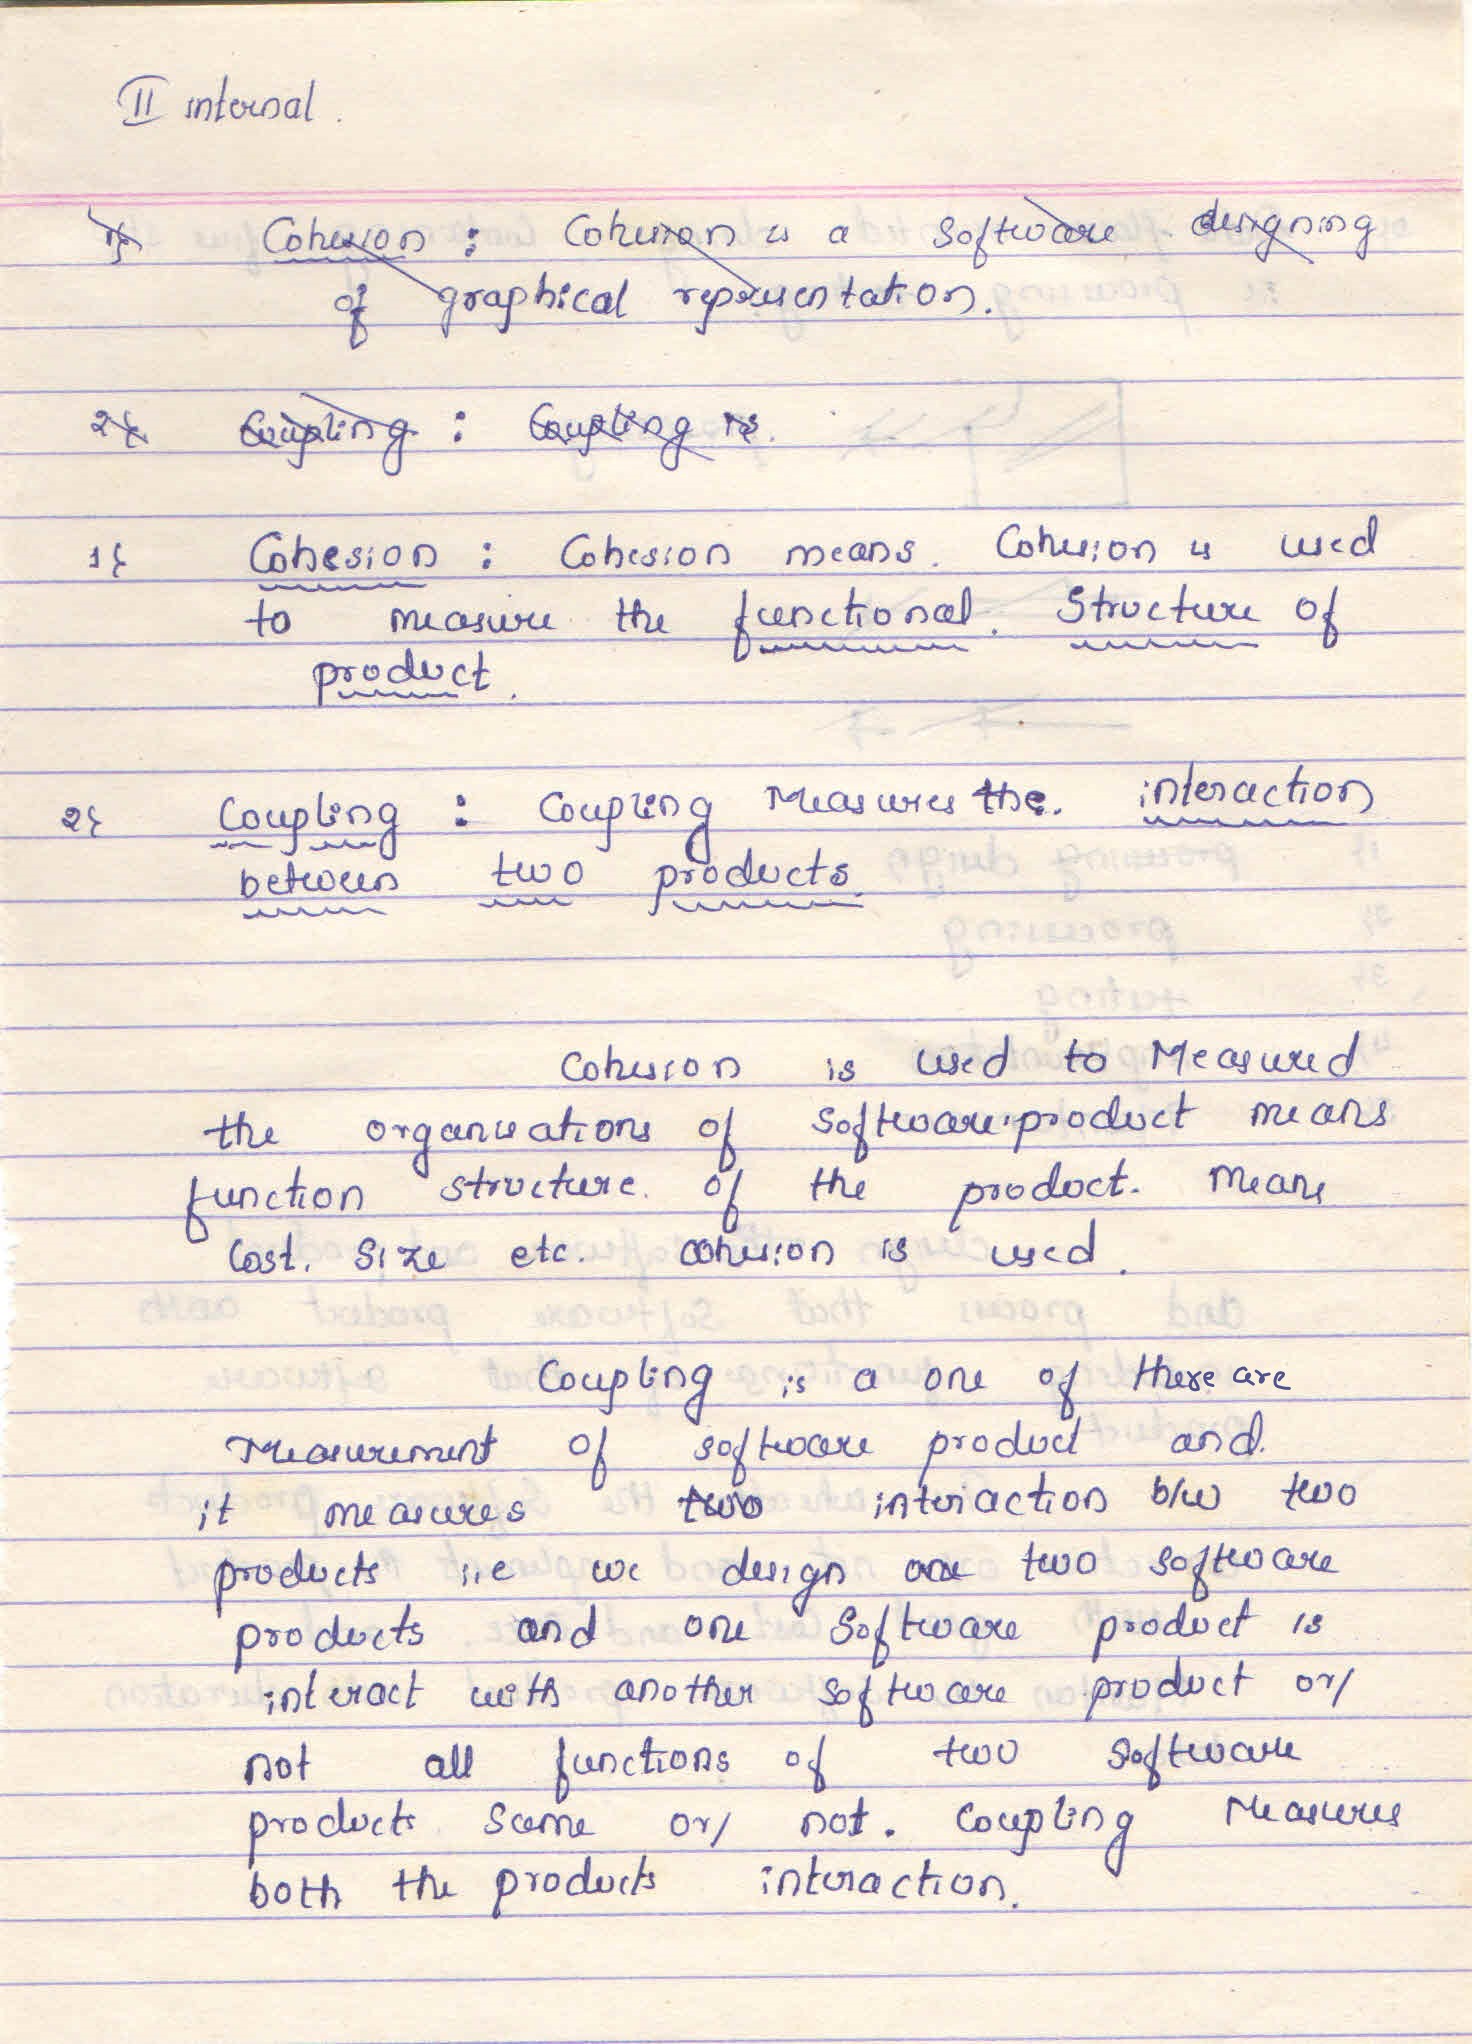 II internal.
1} Cohesion : Cohesion is a Software designing
of graphical representation.
2} Coupling : Coupling is.
1} Cohesion : Cohesion means. Cohesion is used
to measure the functional. Structure of
product.
2} Coupling : Coupling Measures the. interaction
between two products.
Cohesion is used to Measured
the organisations of Software product means
function structure. of the product. Means
Cost. Size etc. cohesion is used.
Coupling is a one of there are
Measurement of software product and.
it measures two interaction b/w two
products i.e we design one two software
products and one Software product is
interact with another software product or/
not all functions of two software
products same or/ not. Coupling Measures
both the products interaction.